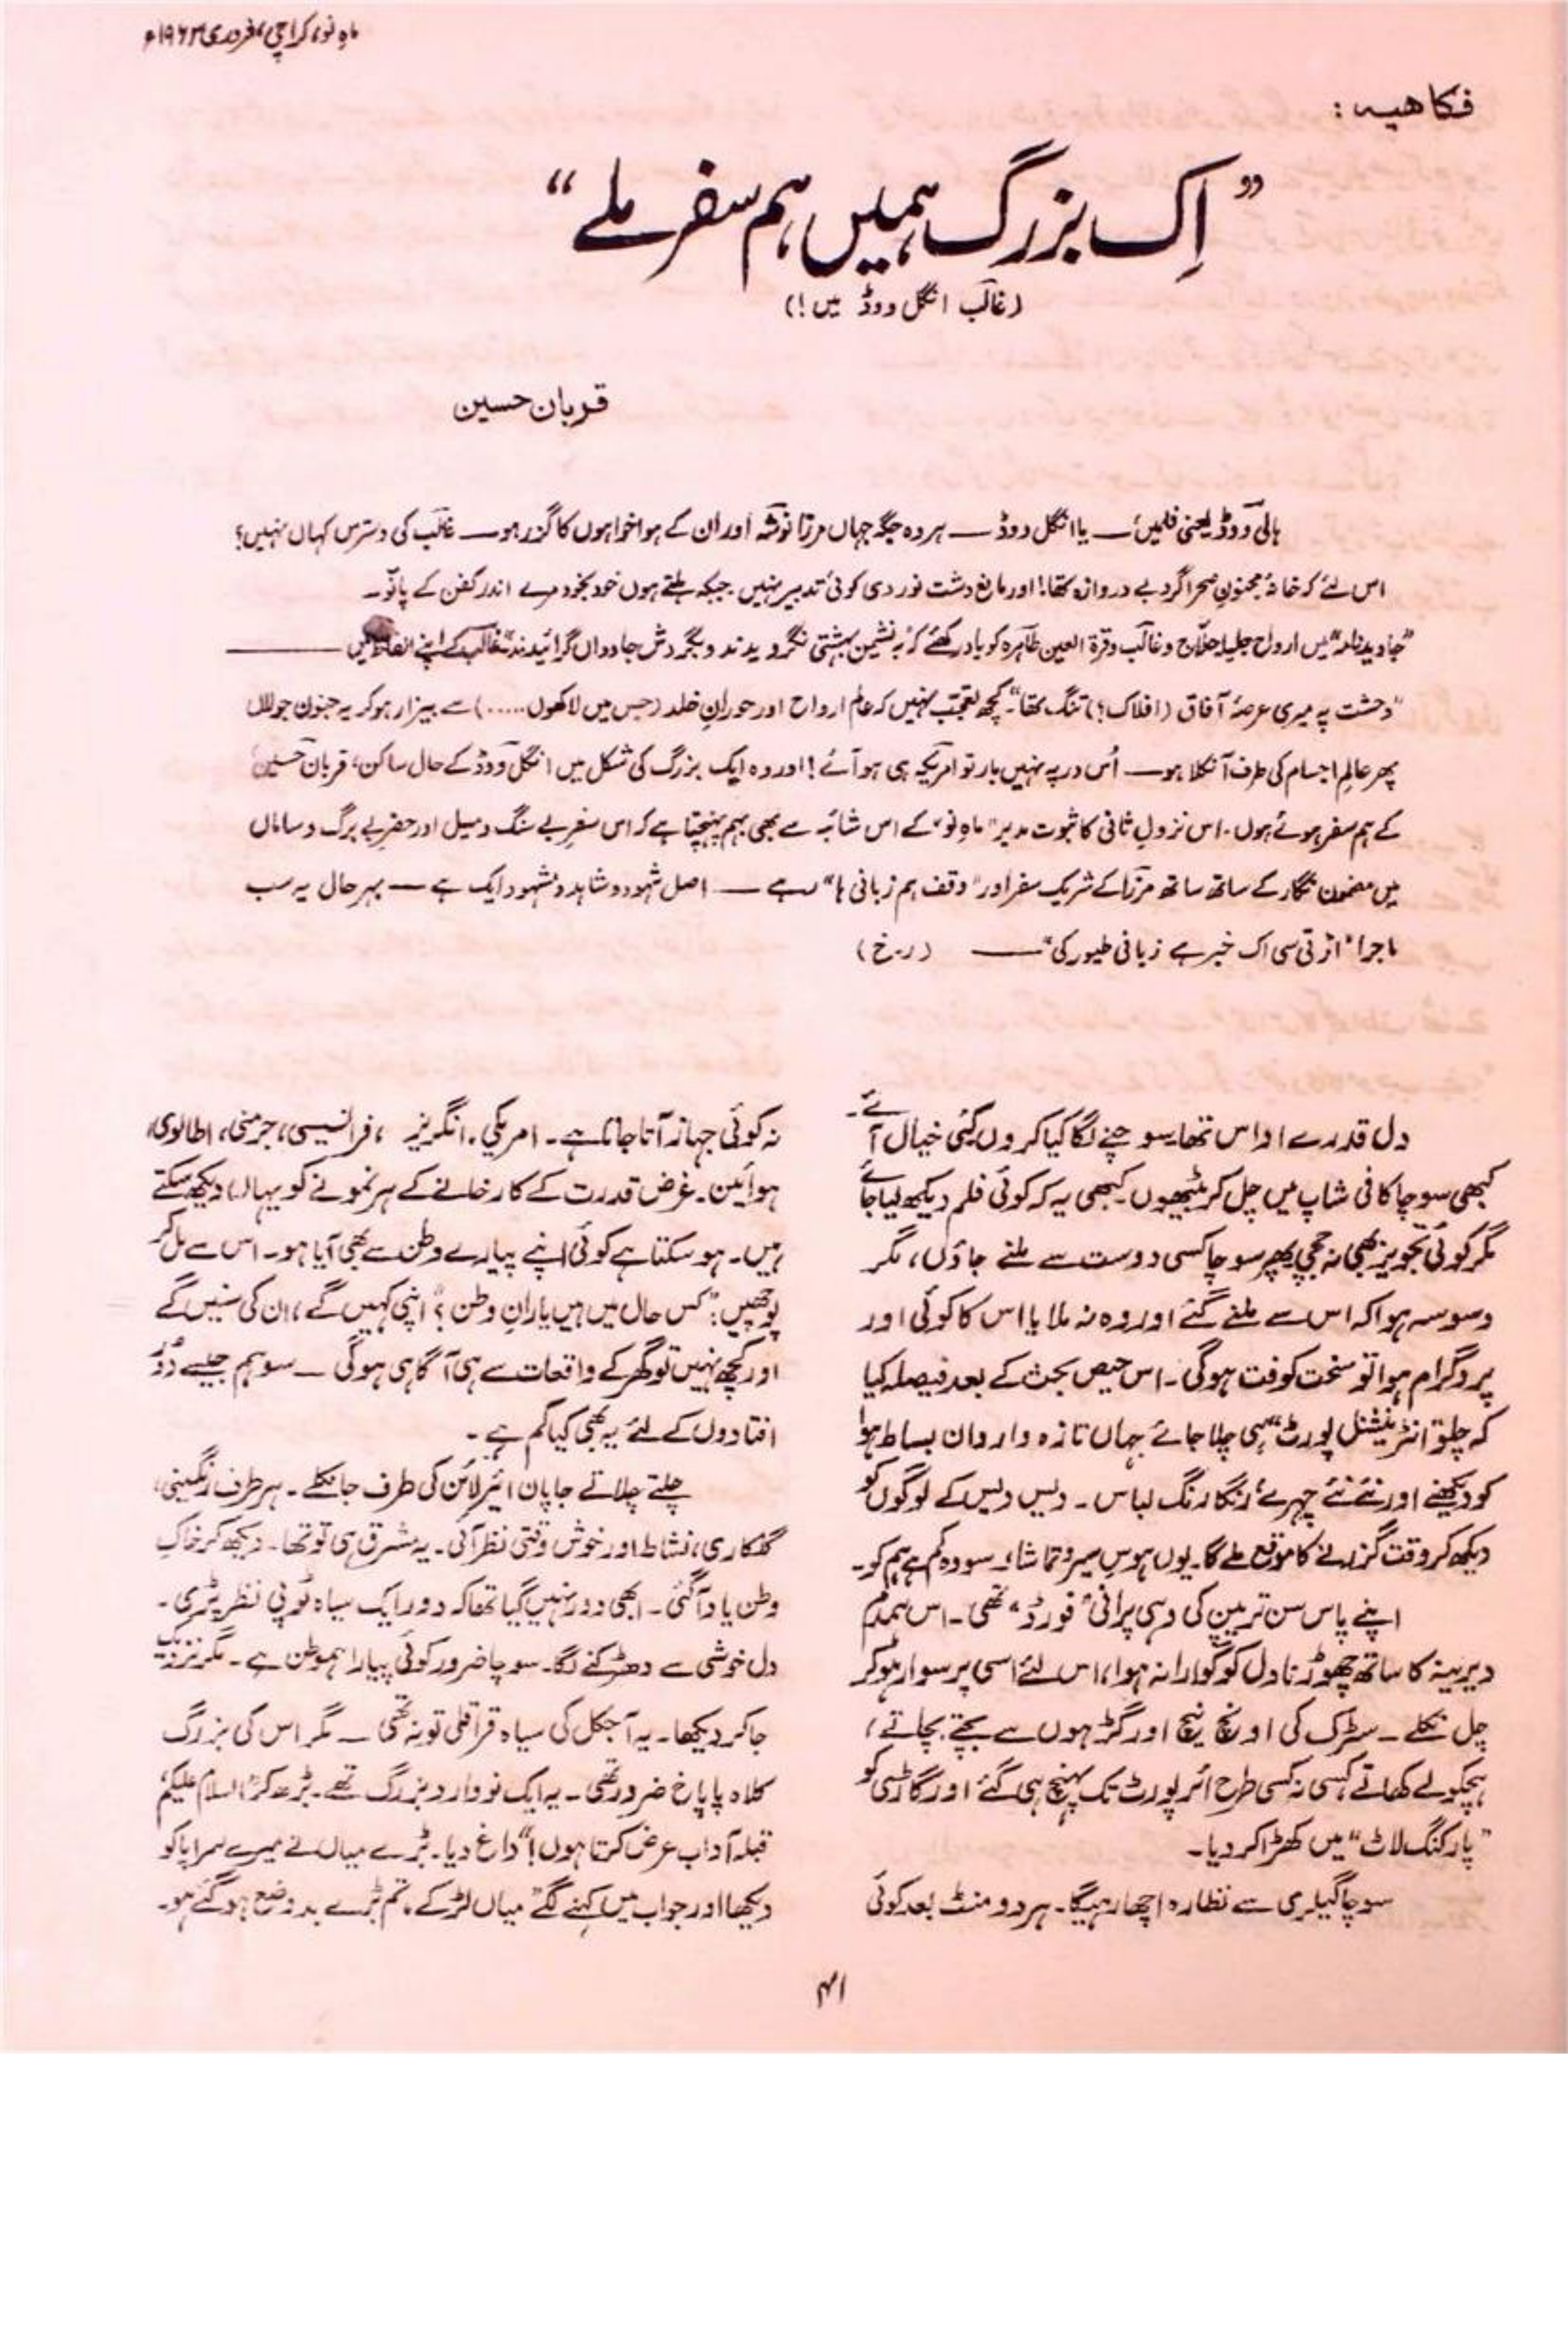 ماہِ نو، کراچی، فروری ۱۹۶۳ء
فکاهیہ :
”اِک بزرگ ہمیں ہم سفر ملے“
(غالب انگل ووڈ میں!)
قربان حسین
ہالی ووڈ یعنی فلمیں؛ — یا انگل ووڈ — ہر وہ جگہ جہاں مرزا نوشہ اور ان کے ہوا خواہوں کا گزر ہو — غالب کی دسترس کہاں نہیں؟
اس لئے کہ خانۂ مجنونِ صحرا گرد بے دروازہ تھا! اور مانع دشت نوردی کوئی تدبیر نہیں جبکہ ہلتے ہوں خود بخود مرے اندر کفن کے پانو۔
”جاوید نامہ“ میں ارواح جلیلۂ حلّاج و غالب و قرۃ العین طاہرہ کو یاد رکھئے کہ ”بہ نشیمن بہشتی نگرویدند و بگردش جاوداں گرائیدند“ غالب کے اپنے الفاظ میں —
”وحشت پہ میری عرصۂ آفاق (افلاک؟) تنگ تھا“۔ کچھ تعجب نہیں کہ عالم ارواح اور حورانِ خلد (جس میں لاکھوں .....) سے بیزار ہو کر یہ جنون جولاں
پھر عالمِ اجسام کی طرف آ نکلا ہو — اُس در پہ نہیں بار تو امریکہ ہی ہو آئے! اور وہ ایک بزرگ کی شکل میں انگل ووڈ کے حال ساکن، قربان حسین،
کے ہم سفر ہوئے ہوں۔ اس نزولِ ثانی کا ثبوت مدیر ”ماہِ نو“ کے اس شائبہ سے بھی بہم پہنچتا ہے کہ اس سفرِ بے سنگ و میل اور حضرِ بے برگ و ساماں
میں مضمون نگار کے ساتھ ساتھ مرزا کے شریک سفر اور ”وقف ہم زبانی ہا“ ہے — اصل شہود و شاہد و مشہود ایک ہے — بہر حال یہ سب
ماجرا ”اڑتی سی اک خبر ہے زبانی طیور کی“ — (ر۔خ)
دل قدرے اداس تھا۔ سوچنے لگا کیا کروں۔ کئی خیال آئے۔
کبھی سوچا کافی شاپ میں چل کر بیٹھوں۔ کبھی یہ کہ کوئی فلم دیکھ لیا جائے
مگر کوئی تجویز بھی نہ جچی۔ پھر سوچا کسی دوست سے ملنے جاؤں، مگر
وسوسہ ہوا کہ اس سے ملنے گئے اور وہ نہ ملا یا اس کا کوئی اور
پروگرام ہوا تو سخت کوفت ہوگی۔ اس حیص بحث کے بعد فیصلہ کیا
کہ چلو ”انٹرنیشنل پورٹ“ ہی چلا جائے جہاں تازہ واردان بساط ہوا
کو دیکھنے اور نئے نئے چہرے، رنگا رنگ لباس۔ دیس دیس کے لوگوں کو
دیکھ کر وقت گزرانے کا موقع ملے گا۔ یوں ہوسِ سیر و تماشا، سو وہ کم ہے ہم کو۔
اپنے پاس سن ترپین کی وہی پرانی ”فورڈ“ تھی۔ اس ہمدم
دیرینہ کا ساتھ چھوڑنا دل کو گوارا نہ ہوا، اس لئے اسی پر سوار ہو کر
چل نکلے۔ سڑک کی اونچ نیچ اور گڑھوں سے بچتے بچاتے،
ہچکولے کھاتے کسی نہ کسی طرح ائر پورٹ تک پہنچ ہی گئے اور گاڑی کو
”پارکنگ لاٹ“ میں کھڑا کر دیا۔
سوچا گیلری سے نظارہ اچھا رہیگا۔ ہر دو منٹ بعد کوئی
نہ کوئی جہاز آتا جاتا ہے۔ امریکی، انگریز، فرانسیسی، جرمنی، اطالوی،
ہوائین۔ غرض قدرت کے کارخانے کے ہر نمونے کو یہاں دیکھ سکتے
ہیں۔ ہو سکتا ہے کوئی اپنے پیارے وطن سے بھی آیا ہو۔ اس سے مل کر
پوچھیں: ”کس حال میں ہیں یارانِ وطن؟“ اپنی کہیں گے، ان کی سنیں گے
اور کچھ نہیں تو گھر کے واقعات سے ہی آگاہی ہوگی — سو ہم جیسے دُور
افتادوں کے لئے یہ بھی کیا کم ہے۔
چلتے چلاتے جاپان ائیر لائن کی طرف جا نکلے۔ ہر طرف رنگینی،
گلکاری، نشاط اور خوش وقتی نظر آئی۔ یہ مشرق ہی تو تھا۔ دیکھ کر خاکِ
وطن یاد آگئی۔ ابھی دور نہیں گیا تھا کہ دور ایک سیاہ ٹوپی نظر پڑی۔
دل خوشی سے دھڑکنے لگا۔ سوچا ضرور کوئی پیارا ہموطن ہے۔ مگر نزدیک
جا کر دیکھا۔ یہ آجکل کی سیاہ قراقلی تو نہ تھی — مگر اس کی بزرگ
کلاہ پاپاخ ضرور تھی۔ یہ ایک نووارد بزرگ تھے۔ بڑھ کر ”السلام علیکم،
قبلہ آداب عرض کرتا ہوں!“ داغ دیا۔ بڑے میاں نے میرے سراپا کو
دیکھا اور جواب میں کہنے لگے ”میاں لڑکے، تم بڑے بد وضع ہو گئے ہو۔
۴۱